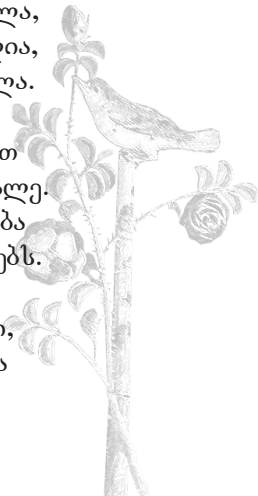 ლა,
ია,
ლა.
თ
ალე.
ბა
ებს.
ი,
ა